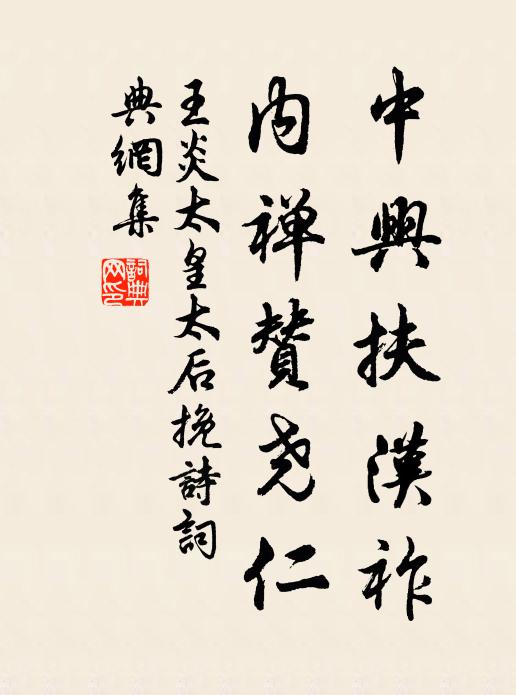 中興扶漢祚
内禅贊尧仁
王炎太皇太后挽詩詞
典網集
詞典
网印